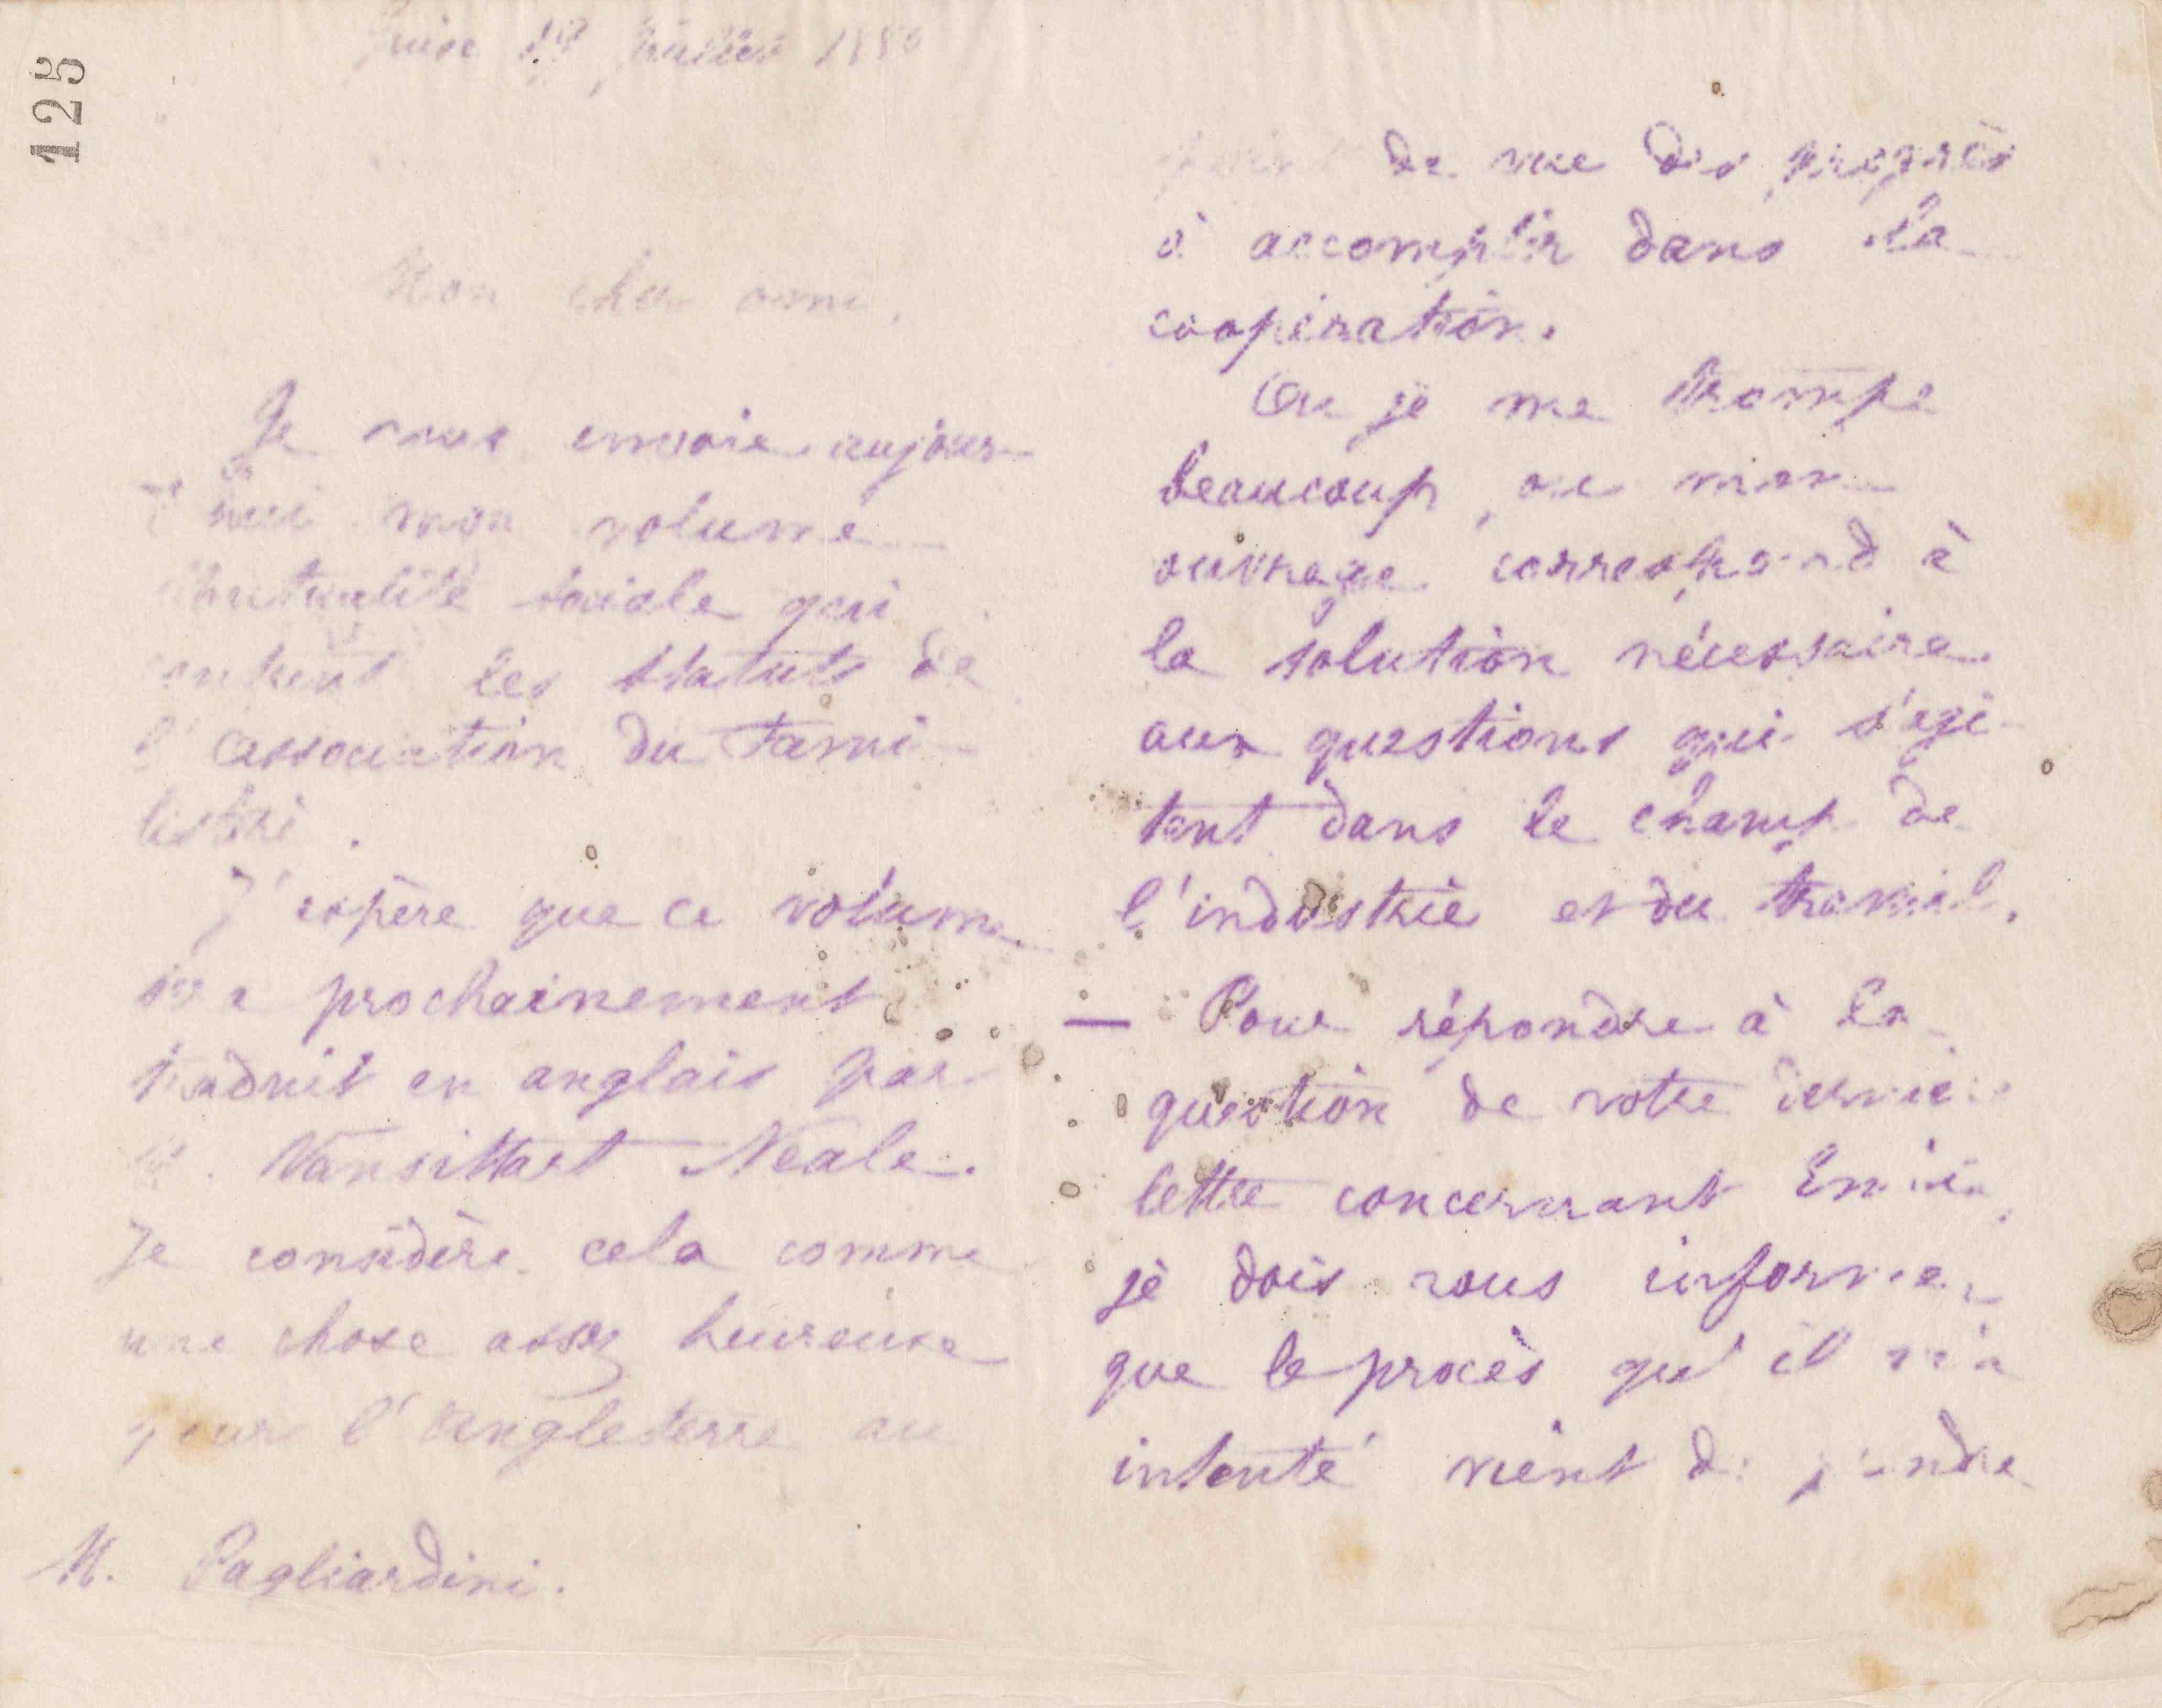 125
Guise 19 Juillet 1880
Mon cher ami,
Je vous envoie aujour-
d'hui mon volume
Mutualité sociale qui
contient les statuts de
l'association du Fami-
listère.
J'espère que ce volume
sera prochainement
traduit en anglais par
M. Vansittart Neale.
Je considère cela comme
une chose assez heureuse
pour l'Angleterre au
M. Pagliardini.
point de vue des progrès
à accomplir dans la
coopération.
Ou je me trompe
beaucoup, ou mon
ouvrage correspond à
la solution nécessaire
aux questions qui s'agi-
tent dans le champ de
l'industrie et du travail.
— Pour répondre à la
question de votre dernière
lettre concernant
je dois vous informer
que le procès qu'il m'a
intenté vient de prendre